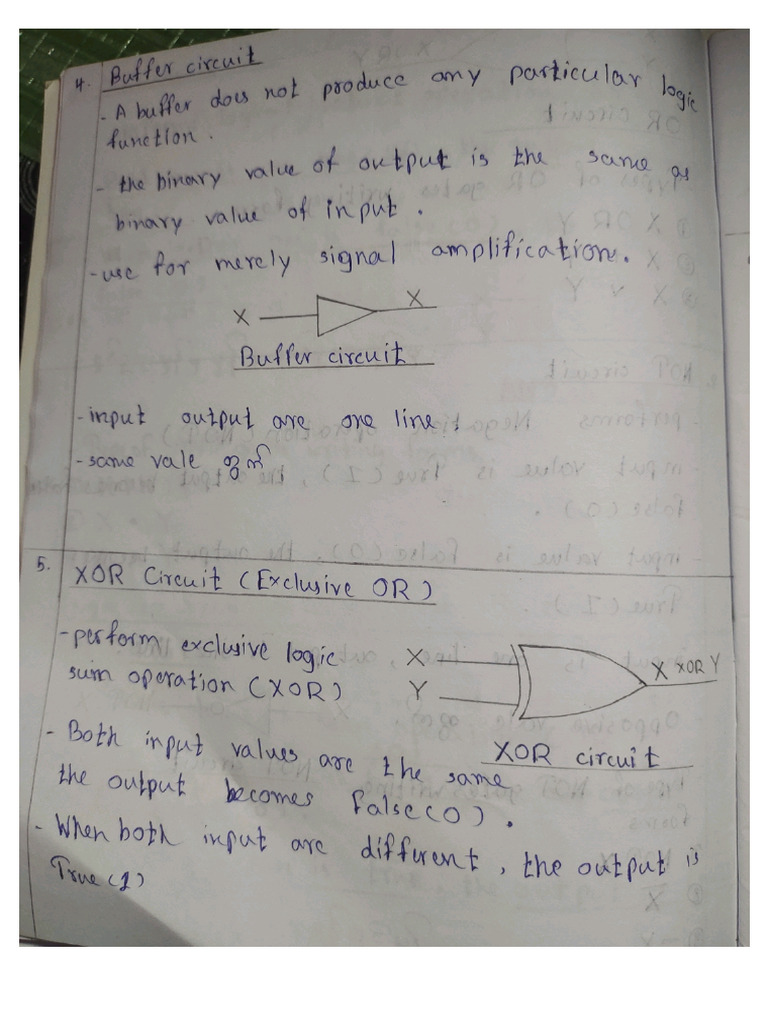 4. Buffer circuit
- A buffer does not produce any particular logic
function.
- the binary value of output is the same as
binary value of input.
- use for merely signal amplification.
X X
Buffer circuit
- input output are one line.
- same vale
5. XOR Circuit (Exclusive OR)
- perform exclusive logic
sum operation (XOR)
X
Y
X XOR Y
XOR circuit
- Both input values are the same
the output becomes false(0).
- When both input are different, the output is
True(1)